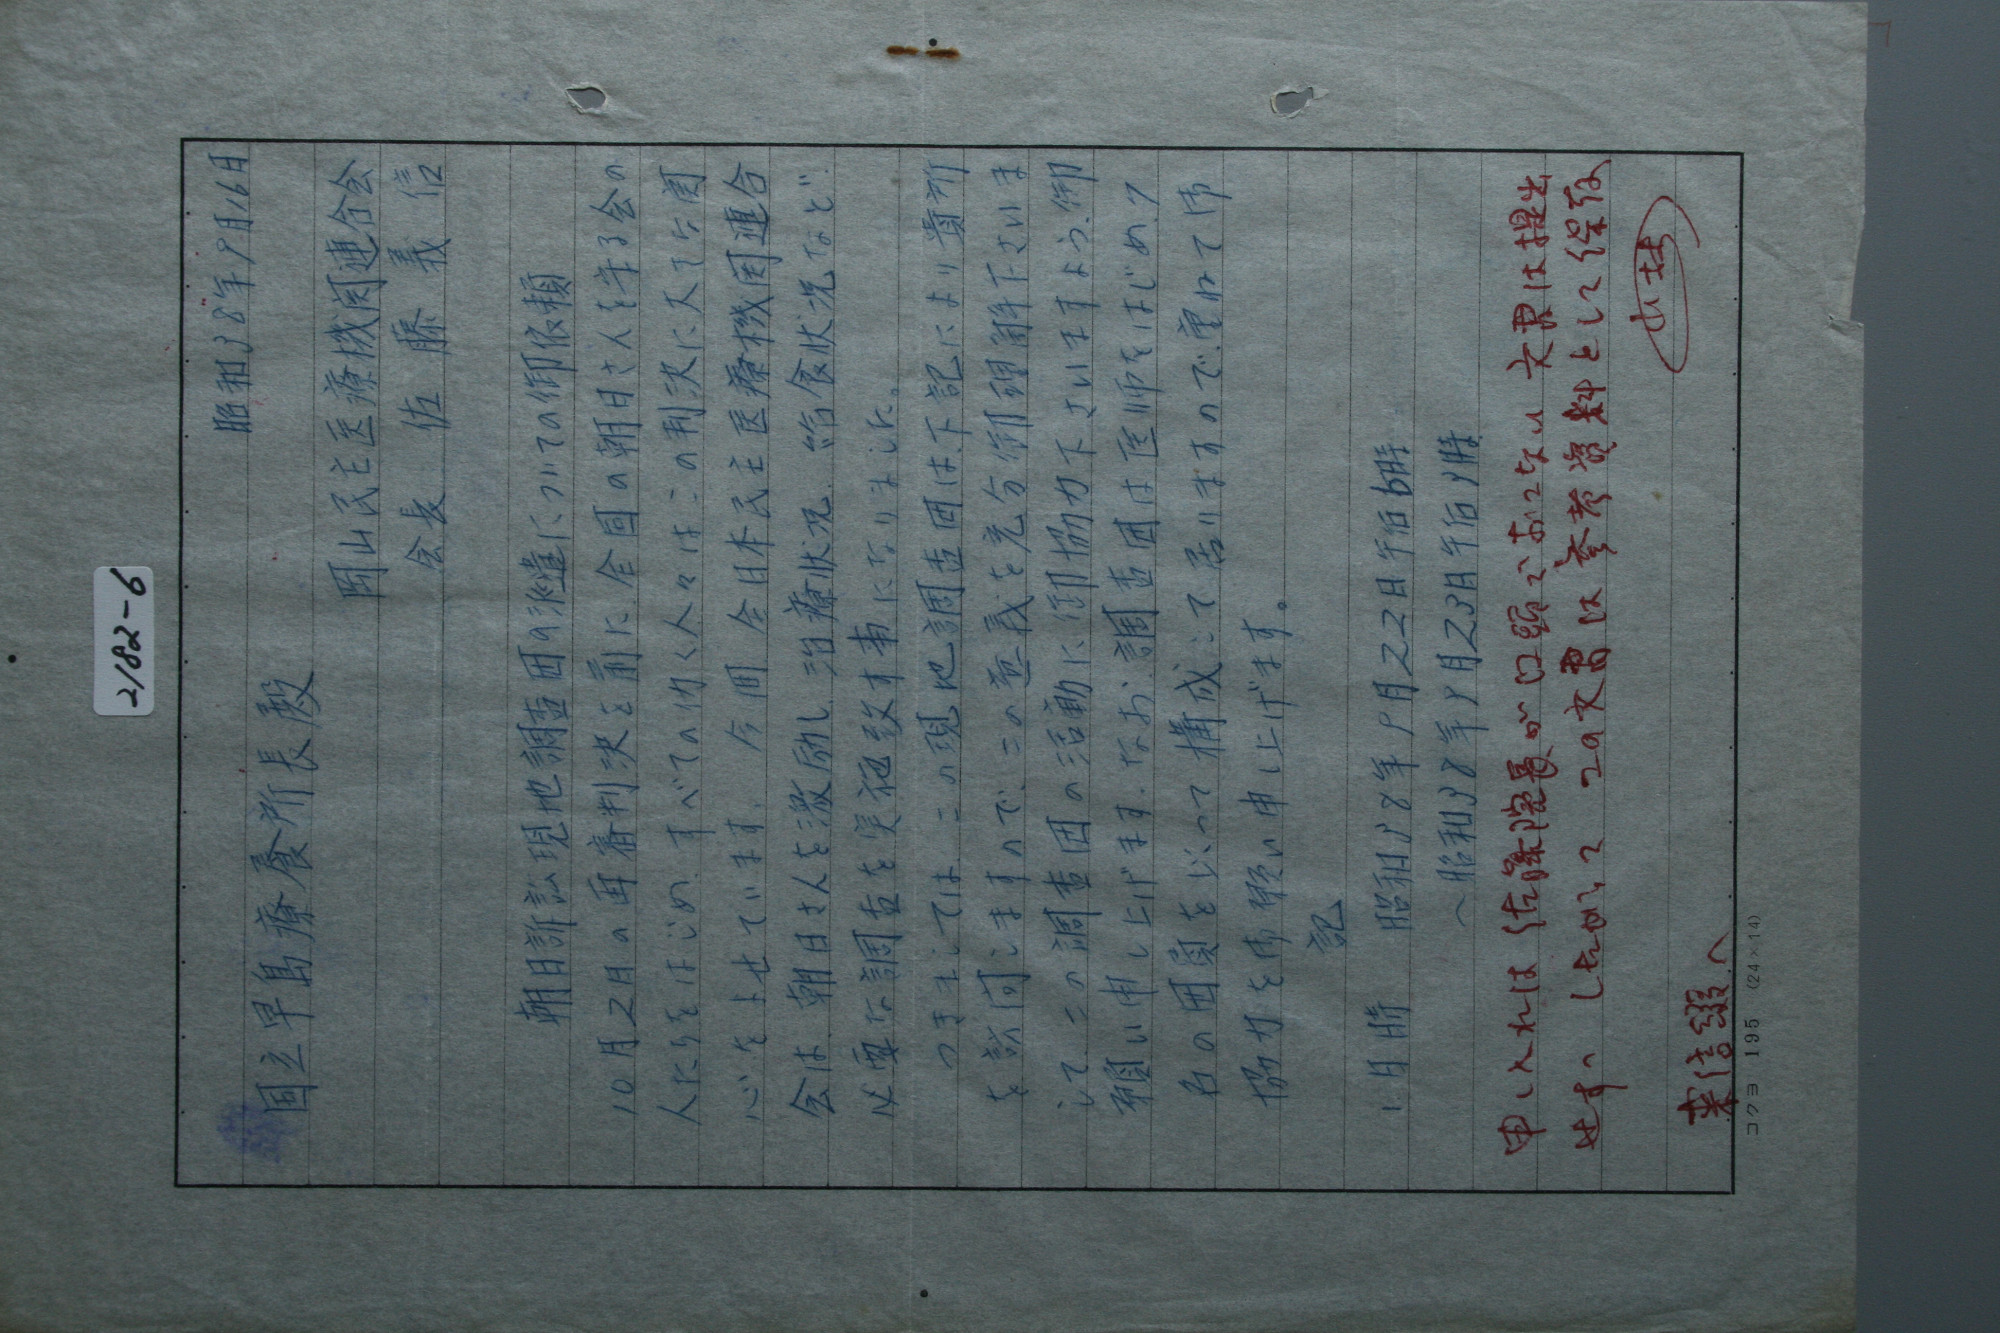 2182-6
昭和38年9月16日
国立早島療養所長殿
岡山民主医療機関連合会
会長 佐藤義信
朝日訴訟現地調査団の派遣についての御依頼
10月2日の再審判決を前に、全国の朝日さんを守る会の
人たちをはじめ、すべての働く人々はこの判決に大きな関
心をよせています。今回 全日本民主医療機関連合
会は、朝日さんを激励し、治療状況、給食状況など
必要な調査を実施致す事になりました。
つきましては、この現地調査団は、下記により貴所
を訪問しますので、この意義を充分御理解下さいま
して、この調査団の活動に御協力下さいますよう、御
願い申し上げます。なお、調査団は医師をはじめ、7
名の団員を以って構成して居りますので、重ねて御
協力を御願い申し上げます。
記
1. 日時 昭和38年9月22日午后6時
〜昭和38年9月23日午后1時
申し入れは佐藤院長が口頭でおこない文書は提出
せず、したがって この文書は参考資料として保存
来信綴へ
コクヨ 195 (24×14)